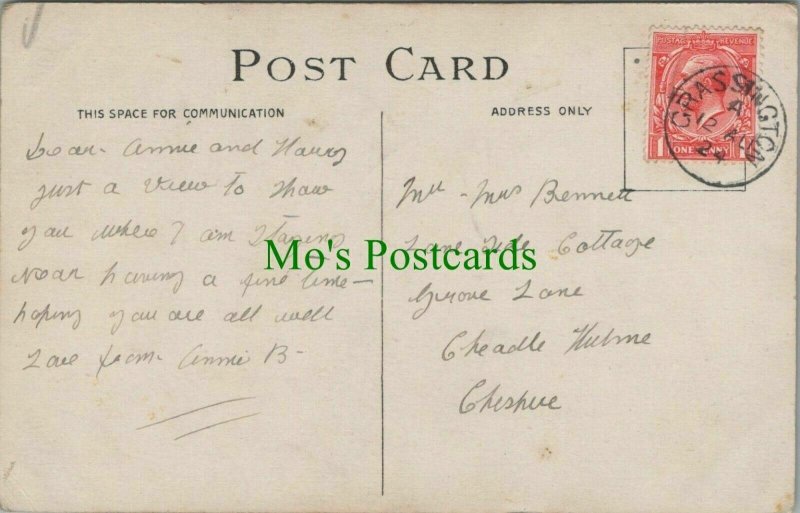 POST CARD
THIS SPACE FOR COMMUNICATION
ADDRESS ONLY
POSTAGE REVENUE
1 ONE PENNY 1
GRASSINGTON
A
12 AU
24
Dear Annie and Harry
Just a View to Show
you where I am Staying
Near having a fine time —
hoping you are all well
Love from Annie B-
Mr - Mrs Bennett
Lane Side Cottage
Grove Lane
Cheadle Hulme
Cheshire
Mo's Postcards